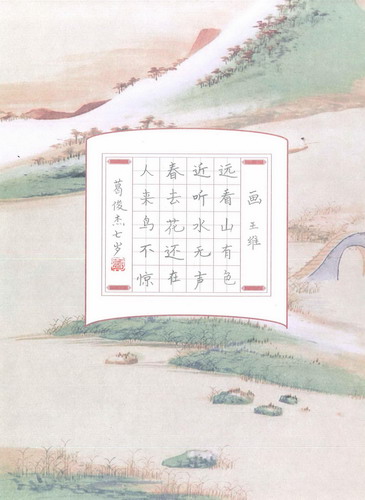 画 王维
远看山有色
近听水无声
春去花还在
人来鸟不惊
葛俊杰七岁